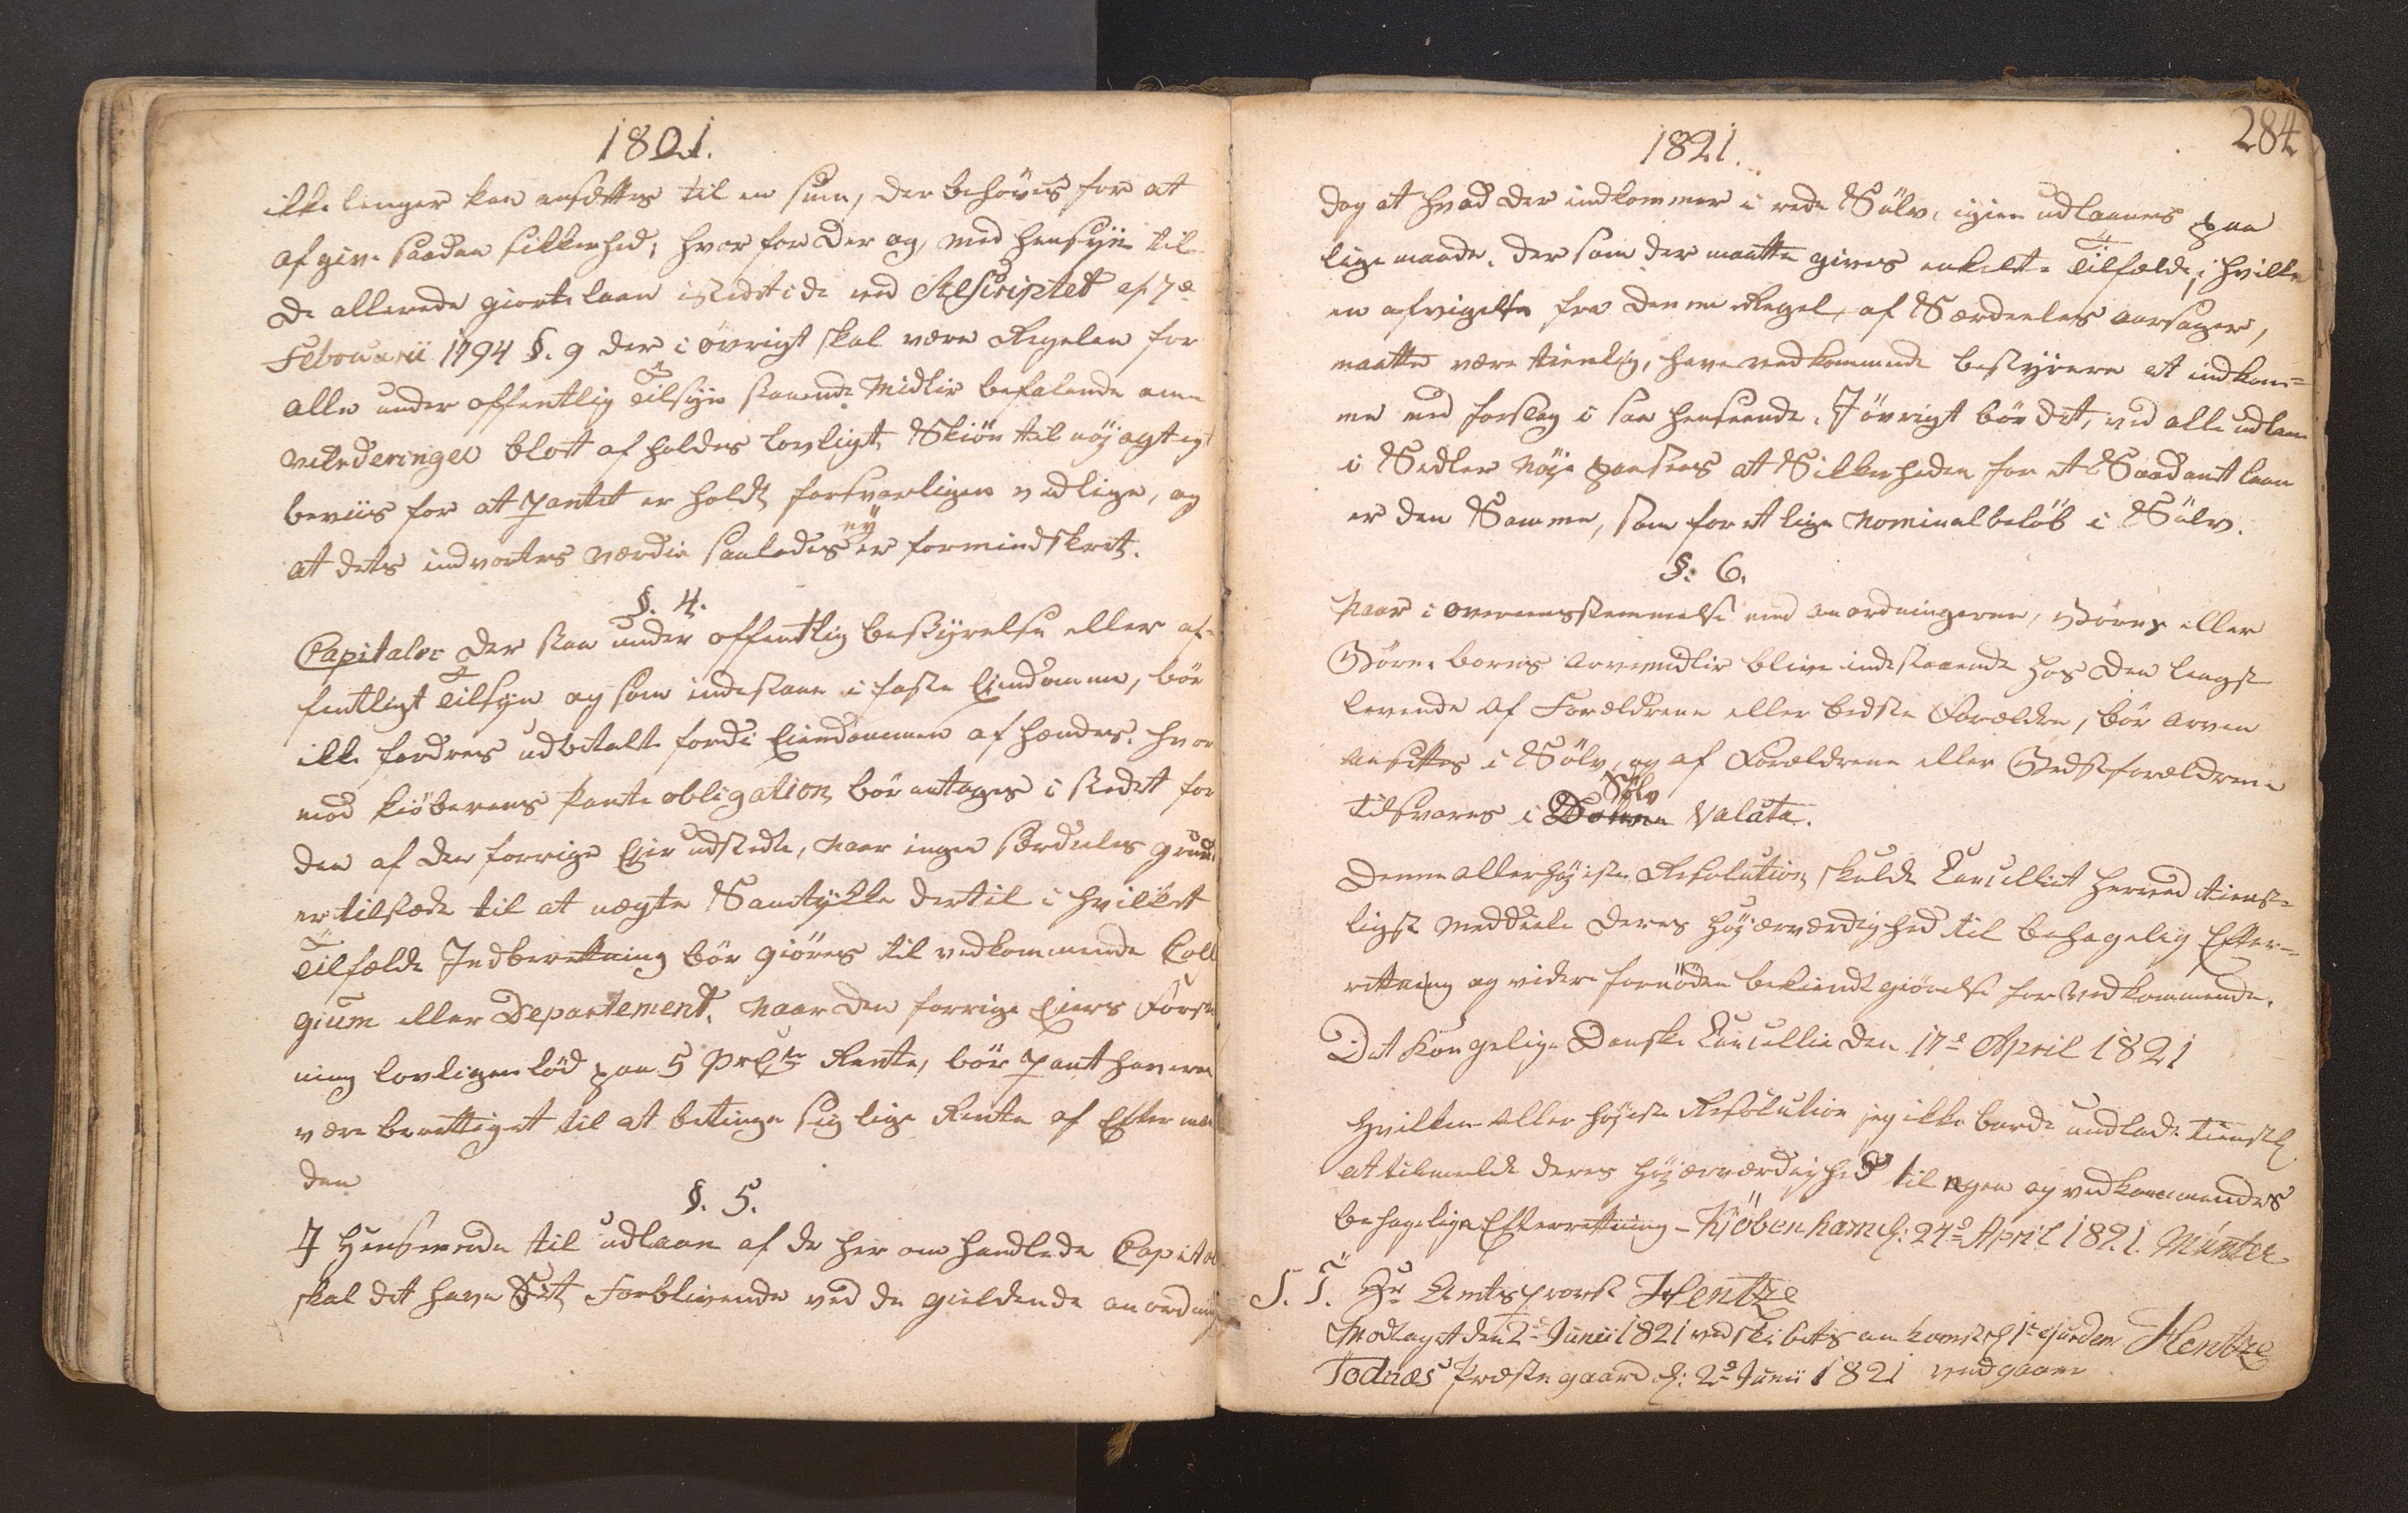 1821.
ikke lenger kan ansættes til en sum, der behøves for at
afgive saadan sikkerhed, hvorfor der og, med hensyn til
de allerede giorte laan istedet i de ved Rescriptet af 7de
Februarii 1794 §. 9 der i øvrigt skal være Regelen for
alle under offentlig Tilsyn staaende Midler befalende om
vurderinger blot afholdes lovligt Skiøn til nøjagtigt
beviis for at Pantet er holdt forsvarligen vedlige, og
at dets indvortes værdie saaledes ey er formindsket.
§. 4.
Capitaler der staa under offentlig bestyrelse eller of-
fentligt Tilsyn og som indestaae i faste Eiendomme, bør
ikke fordres udbetalt fordi Eiendommen afhændes, hvor
mod kiøberens Pante obligation bør antages i stedet for
den af den forrige Ejer udstedte, naar ingen særdeles grund
er tilstæde til at nægte Samtykke dertil i hvilket
Tilfælde Indberettning bør giøres til vedkommende Coll
gium eller Departement. Naar den forrige Eiers Forskr
ning lovligen lød paa 5 PrCto Rente, bør Panthaveren
være berettiget til at betinge sig lige Rente af Efterman
den
§. 5.
I Henseende til udlaan af de her omhandlede Capital
skal det have sit Forblivende ved de gieldende anordning
284
1821.
dog at hvad der indkommer i rede Sølv, igien udlaanes paa
lige maade. Dersom der maatte gives enkelte Tilfælde, i hvilke
en afvigelse fra denne Regel, af Særdeeles aarsager,
maatte være tienlig, have vedkommende bestyrere at indkom-
me med forslag i saa henseende. I øvrigt bør det, ved alle udlaan
i Sedler nøje paasees at Sikkerheden for et Saadant laan
er den Samme, som for et lige Nominalbeløb i Sølv.
§. 6.
Naar i overeensstemmelse med anordningerne, Børns eller
Børne borns arvemidler blive indestaaende hos den lengst-
levende af Forældrene eller bedste Forældre, bør arven
ansættes i Sølv, og af Forældrene eller Bedsteforældrene
Sølv
tilsvares i Valuta.
Denne allerhøjeste Resolution skulde Cancelliet herved tienst-
ligst meddeele Deres Høyærværdighed til behagelig Efter-
rettning og videre fornøden bekiendtgiørelse for Vedkommende.
Det Kongelige Danske Cancellie den 17de April 1821
Hvilken Allerhøjeste Resolution jeg ikke burde undlade tienstl
at tilmelde Deres Høyærværdighed til egen og vedkommendes
behagelige Efterrettning - Kjøbenhavn d: 24de April 1821. Münter
S. T. Hr Amtsprovst Hentze
Modtaget den 2de Junii 1821 ved skibets ankomst d 1ste ejusdem Hentze
Todnæs Præstegaard d: 2de Junii 1821 vedgaaer